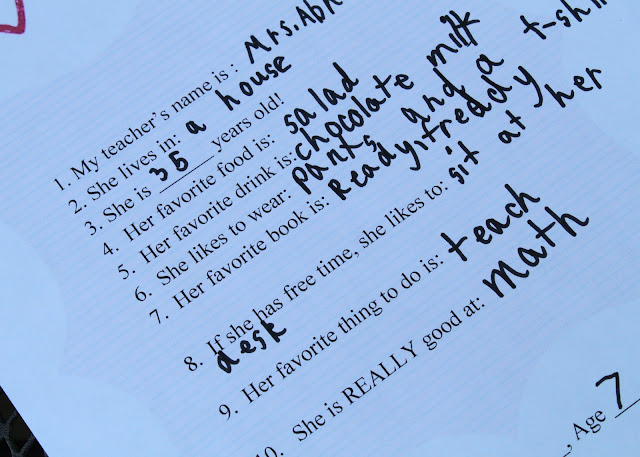 1. My teacher's name is: Mrs. Abr
2. She lives in: a house
3. She is 35 years old!
4. Her favorite food is: salad
5. Her favorite drink is: chocolate milk
6. She likes to wear: pants and a t-shi
7. Her favorite book is: Ready,itreddy
8. If she has free time, she likes to: sit at her
desk
9. Her favorite thing to do is: teach
10. She is REALLY good at: math
, Age 7